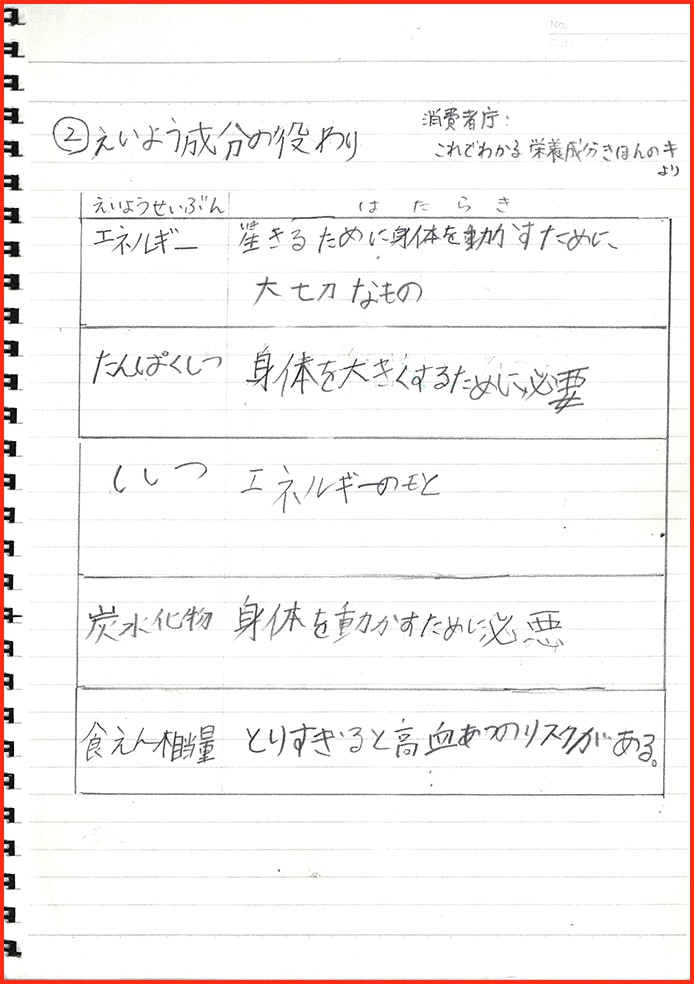 No.
Date
②えいよう成分の役わり
消費者庁:
これでわかる栄養成分きほんのキ
より
えいようせいぶん はたらき
エネルギー 生きるために身体を動かすために、
大切なもの
たんぱくしつ 身体を大きくするために必要
ししつ エネルギーのもと
炭水化物 身体を動かすために必悪
食えん相当量 とりすぎると高血あつのリスクがある。